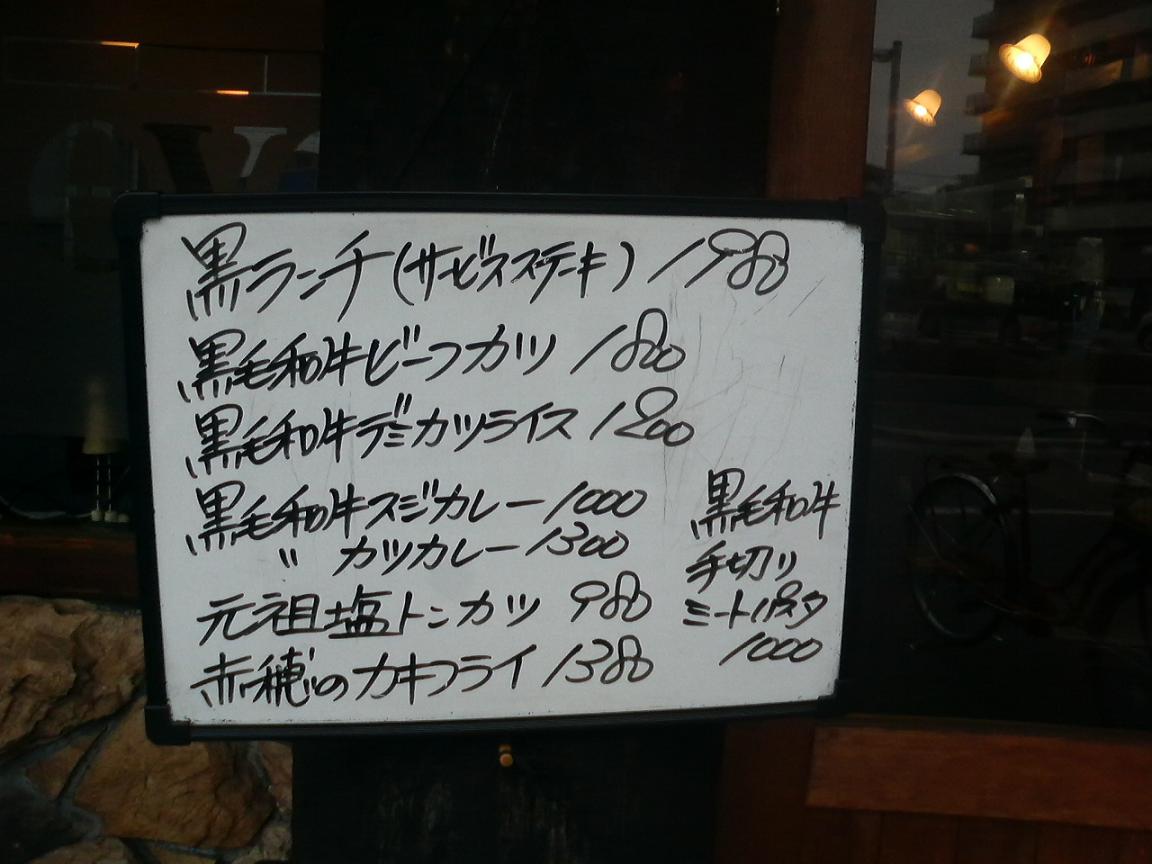 黒ランチ(サービスステーキ) 1980
黒毛和牛ビーフカツ 1800
黒毛和牛デミカツライス 1200
黒毛和牛スジカレー 1000
〃 カツカレー 1300
元祖塩トンカツ 980
赤穂のカキフライ 1380
黒毛和牛
手切り
ミートパスタ
1000